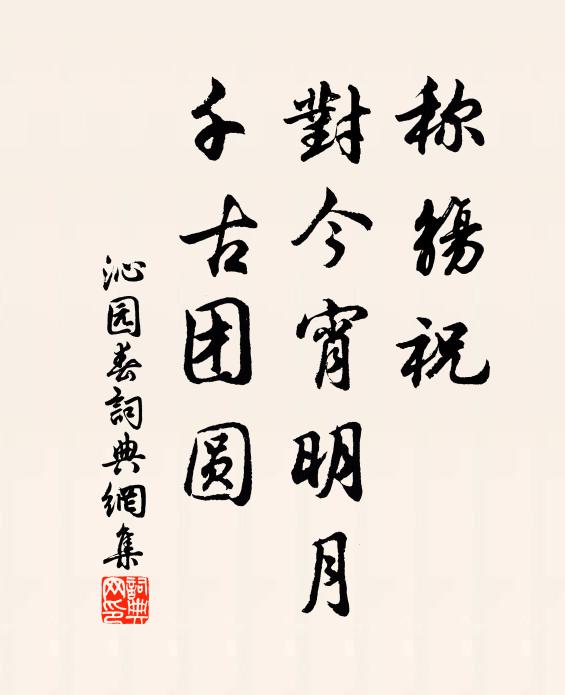 称觞祝
對今宵明月
千古团圆
沁园春詞典網集
詞典网印